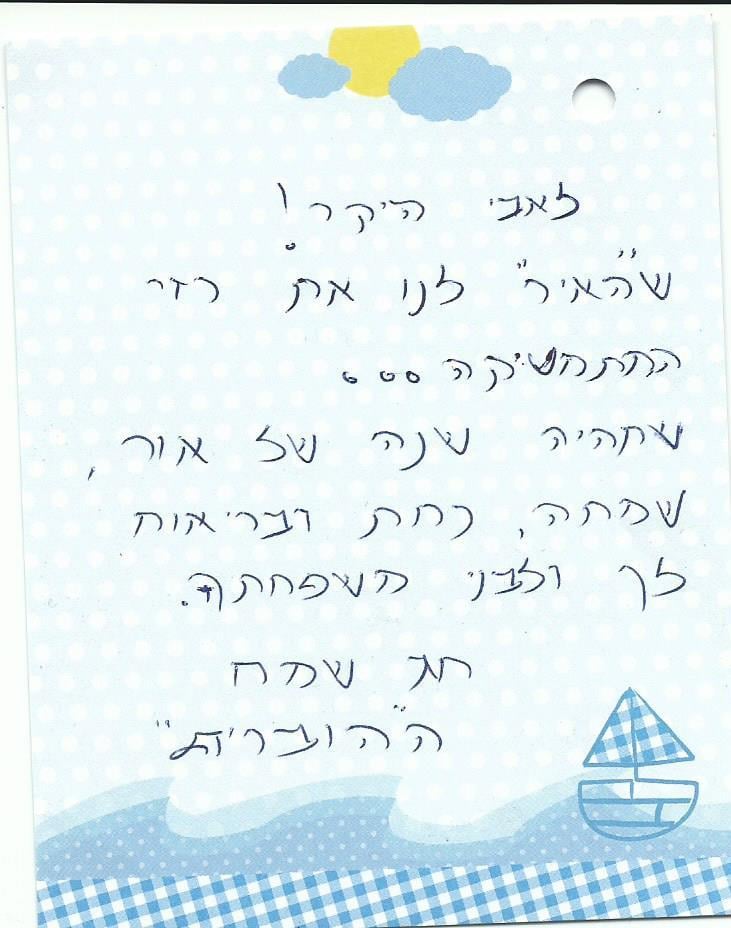 לאבי היקר!
ש"האיר" לנו את רזי
המתמטיקה...
שתהיה שנה של אור,
שמחה, נחת ובריאות
לך ולבני משפחתך.
חג שמח